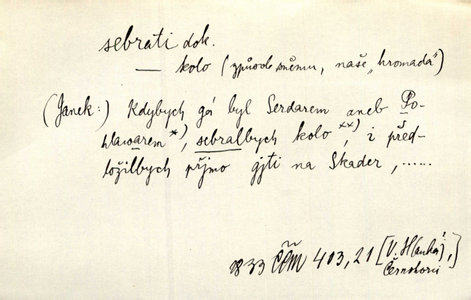 sebrati dok.
— kolo (způsob sněmu, naše „hromada")
(Janek:) Kdybych gá byl Serdarem aneb Po-
hlawarem *), sebralbych kolo, xx) i před-
ložilbych přjmo gjti na Skader, ......
1833 ČČM 403,21 [V. H(anka),
Černohorci]